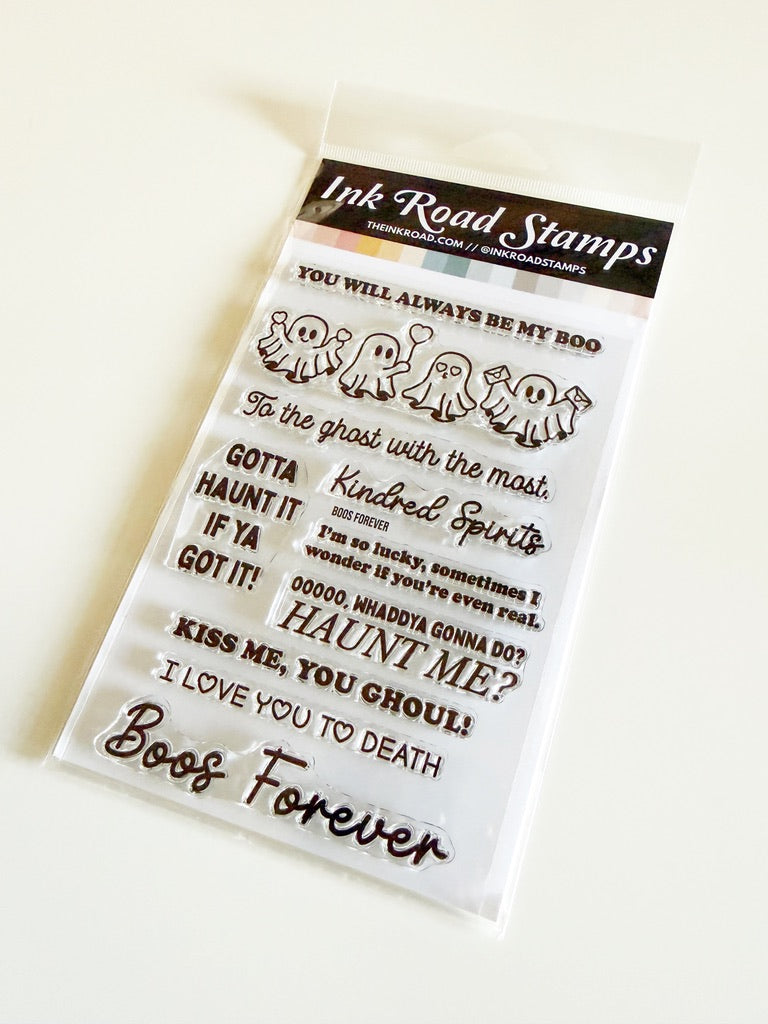 Ink Road Stamps
THEINKROAD.COM // @INKROADSTAMPS
YOU WILL ALWAYS BE MY BOO
To the ghost with the most,
GOTTA
HAUNT IT
IF YA
GOT IT!
Kindred Spirits
BOOS FOREVER
I'm so lucky, sometimes I
wonder if you're even real.
OOOOO, WHADDYA GONNA DO?
HAUNT ME?
KISS ME, YOU GHOUL!
I LOVE YOU TO DEATH
Boos Forever